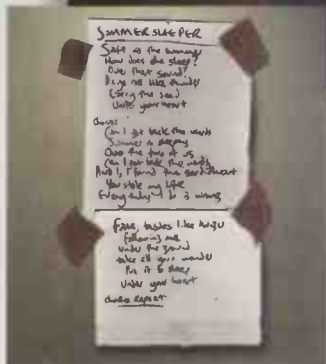 SUMMERSLEEPER
Safe in the summer
How does she sleep?
Over that sound?
like
the seed
Under your heart
Chorus:
Can I get back the words
Summer is sleeping
Over the two of us
Can I get back the words
And I, I found the
You stole my life
Everyday I do is wrong
Fine, tastes like
following me
under the ground
take all your
Put it to sleep
Under your heart
chorus repeat